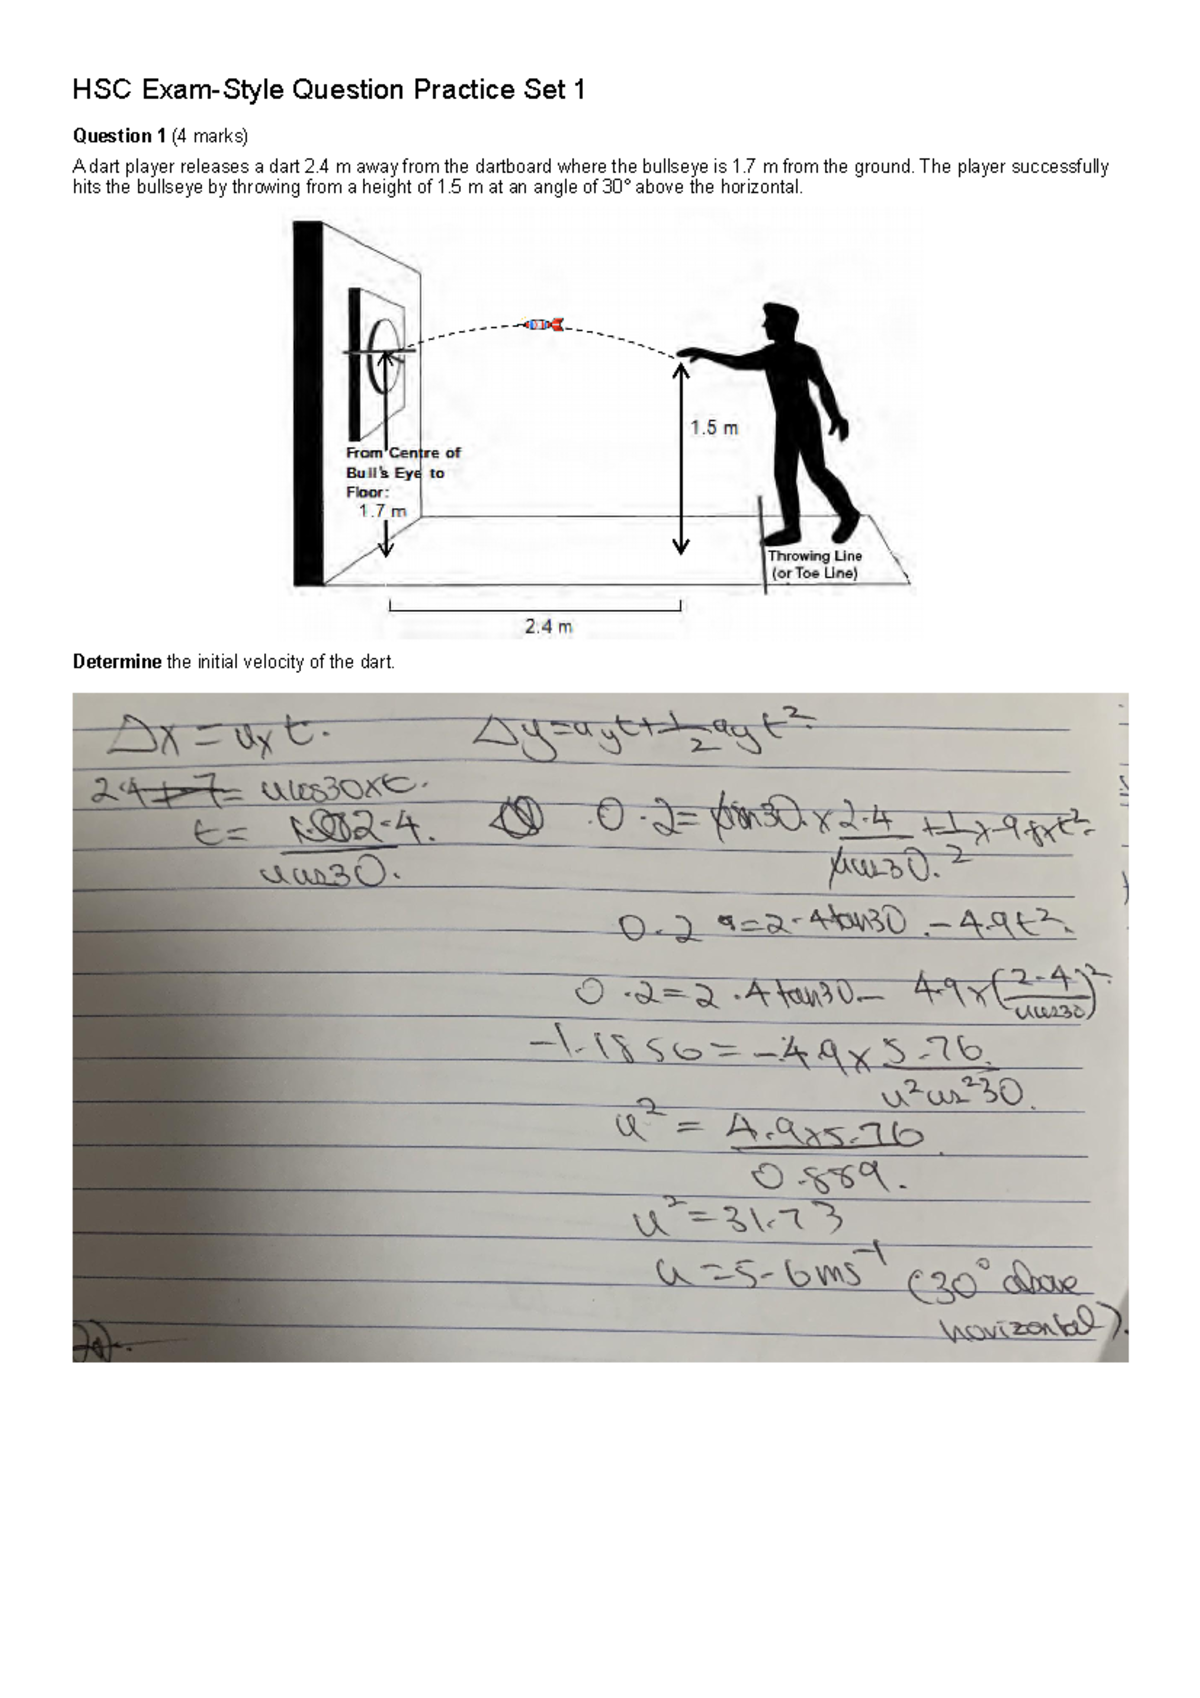 HSC Exam-Style Question Practice Set 1
Question 1 (4 marks)
A dart player releases a dart 2.4 m away from the dartboard where the bullseye is 1.7 m from the ground. The player successfully
hits the bullseye by throwing from a height of 1.5 m at an angle of 30° above the horizontal.
1.5 m
From Centre of
Bull's Eye to
Floor:
1.7 m
Throwing Line
(or Toe Line)
2.4 m
Determine the initial velocity of the dart.
Δx = uₓt. Δy = u_y t + 1/2 a_y t².
2.4 = ucos30×t.
t = 2.4 / ucos30.
0.2 = usin30 × 2.4 / ucos30 + 1/2 × -9.8 × t².
0.2 = 2.4tan30 - 4.9t².
0.2 = 2.4tan30 - 4.9×(2.4 / ucos30)².
-1.1856 = -4.9 × 5.76 / u²cos²30.
u² = 4.9×5.76 / 0.889.
u² = 31.73
u = 5.6ms⁻¹ (30° above
horizontal).